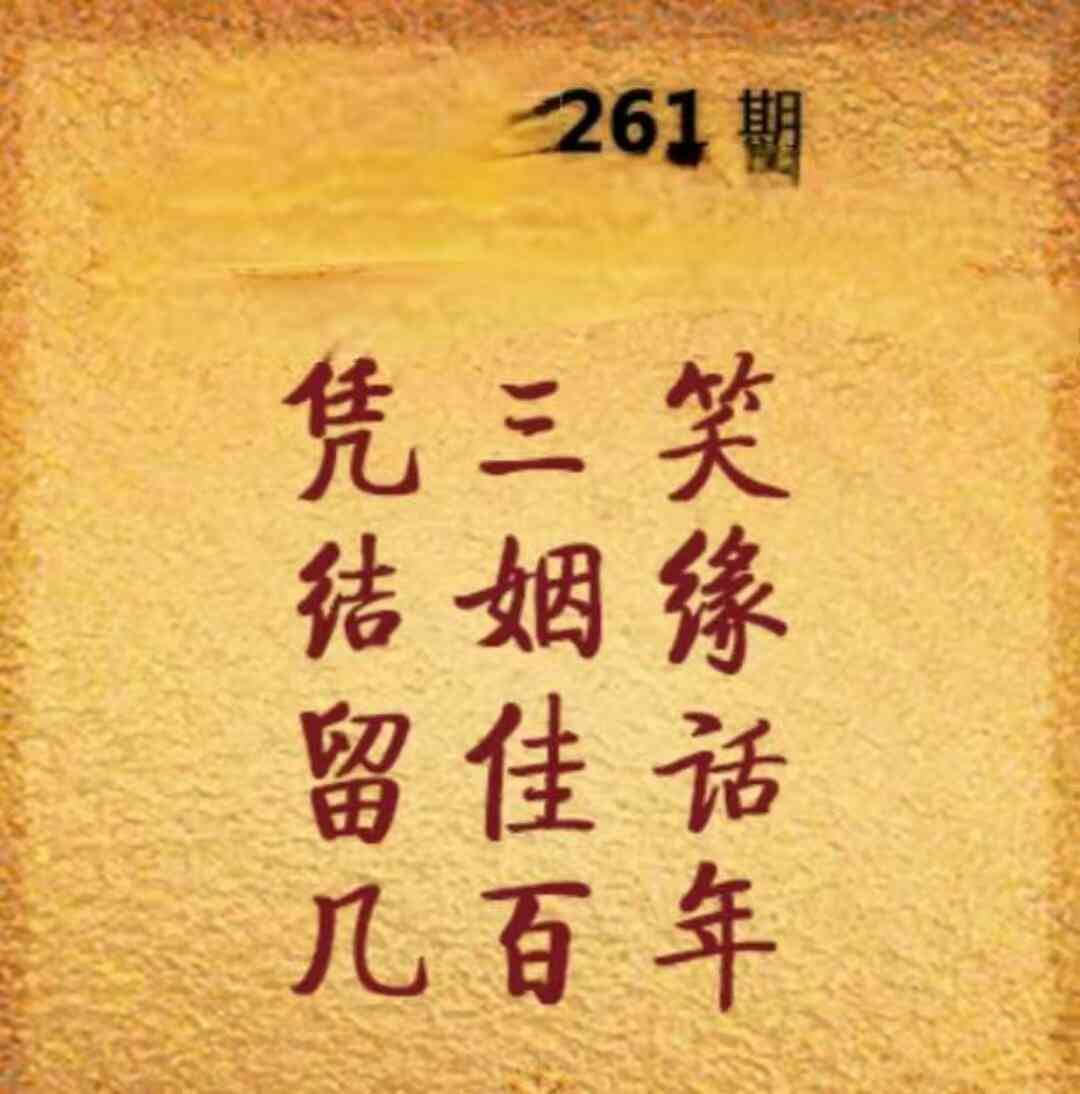 261 期
凭三笑
结姻缘
留佳话
几百年